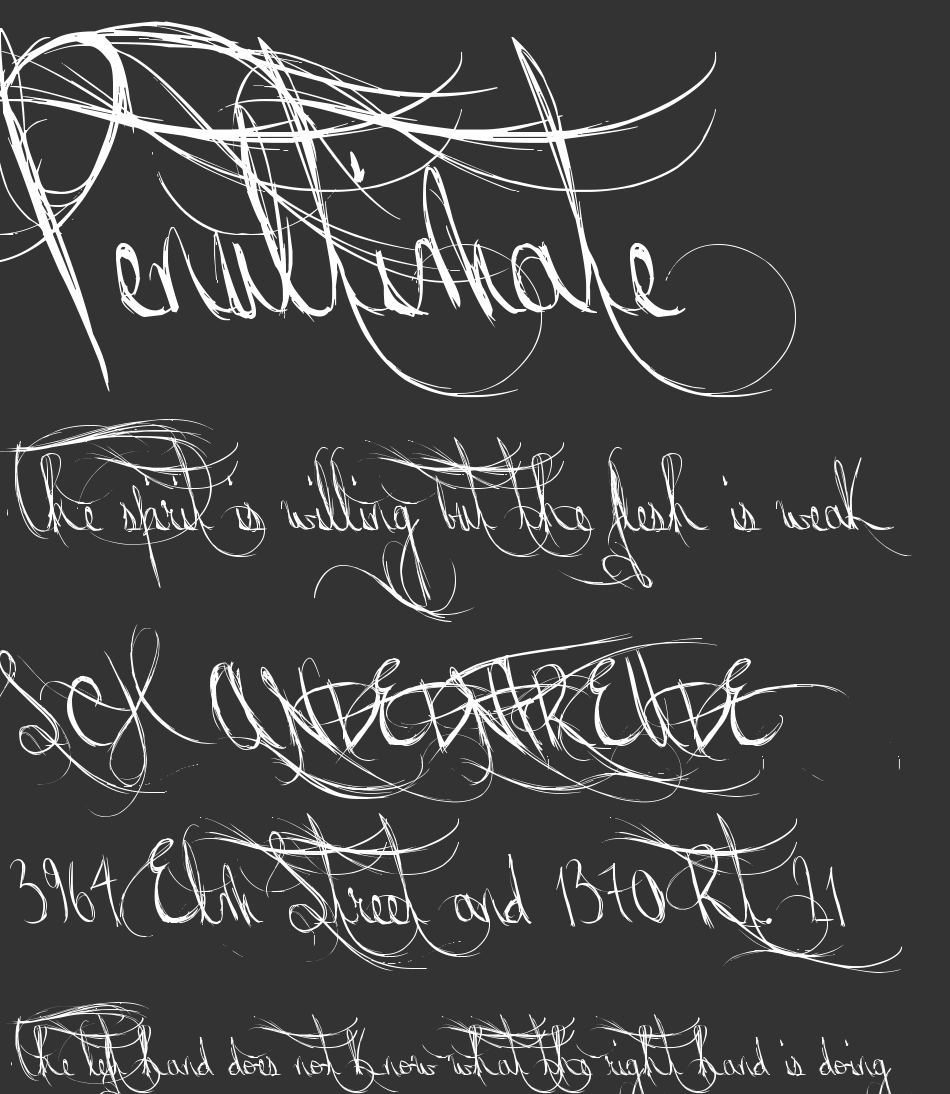 Penultimate
The spirit is willing but the flesh is weak
SIX
3964 Elm Street and 1370 Rt. 21
The left hand does not know what the right hand is doing